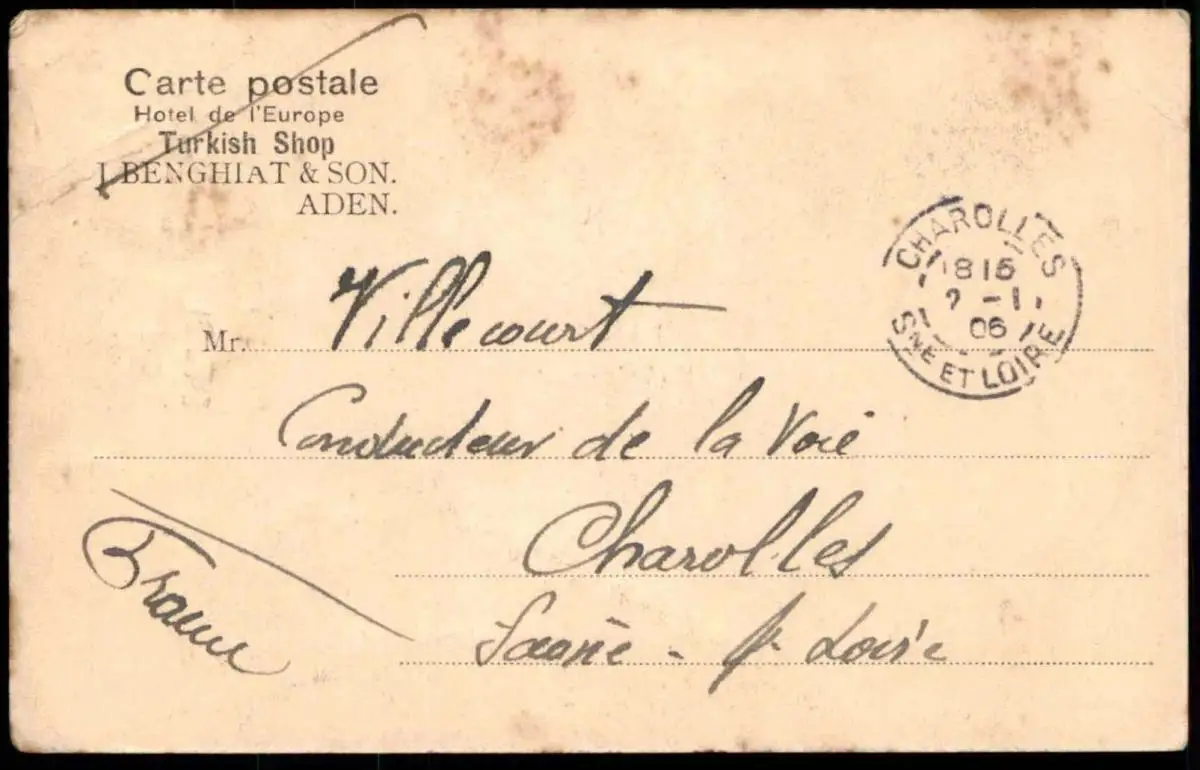 Carte postale
Hotel de l'Europe
Turkish Shop
I. BENGHIAT & SON.
ADEN.
CHAROLLES
1815
2 - 1
06
SNE ET LOIRE
Mr. Villecourt
Conducteur de la Voie
Charolles
Saone - &. Loire
France